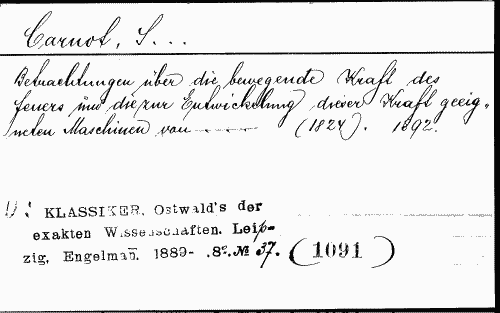 Carnot, S...
Betrachtungen über die bewegende Kraft des
feuers und die zur Entwickelung dieser Kraft geeig-
neten Maschinen von ------ (1824). 1892.
KLASSIKER, Ostwald's der
exakten Wissenschaften. Leip-
zig, Engelman̄. 1889- .8º. № 37. (1091)